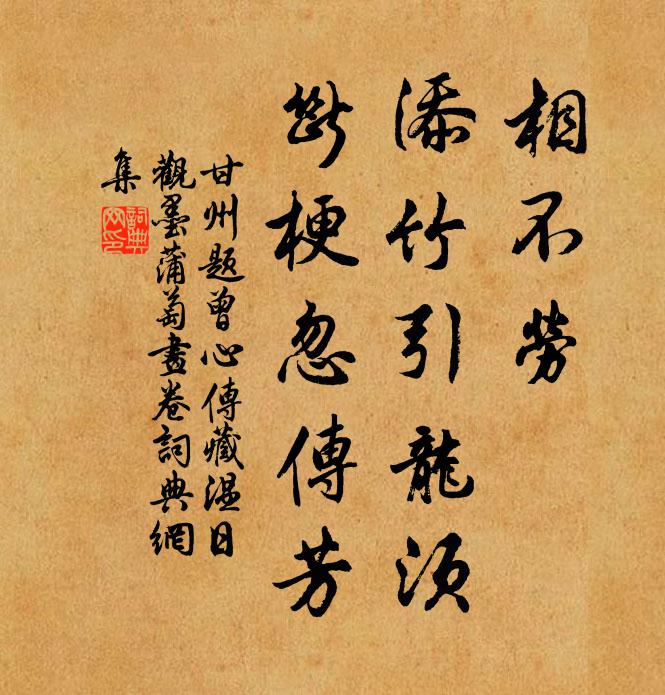 相不勞
添竹引龍須
斷梗忽傳芳
甘州題曾心傳藏溫日
觀墨蒲萄畫卷詞典網
集
詞典網印